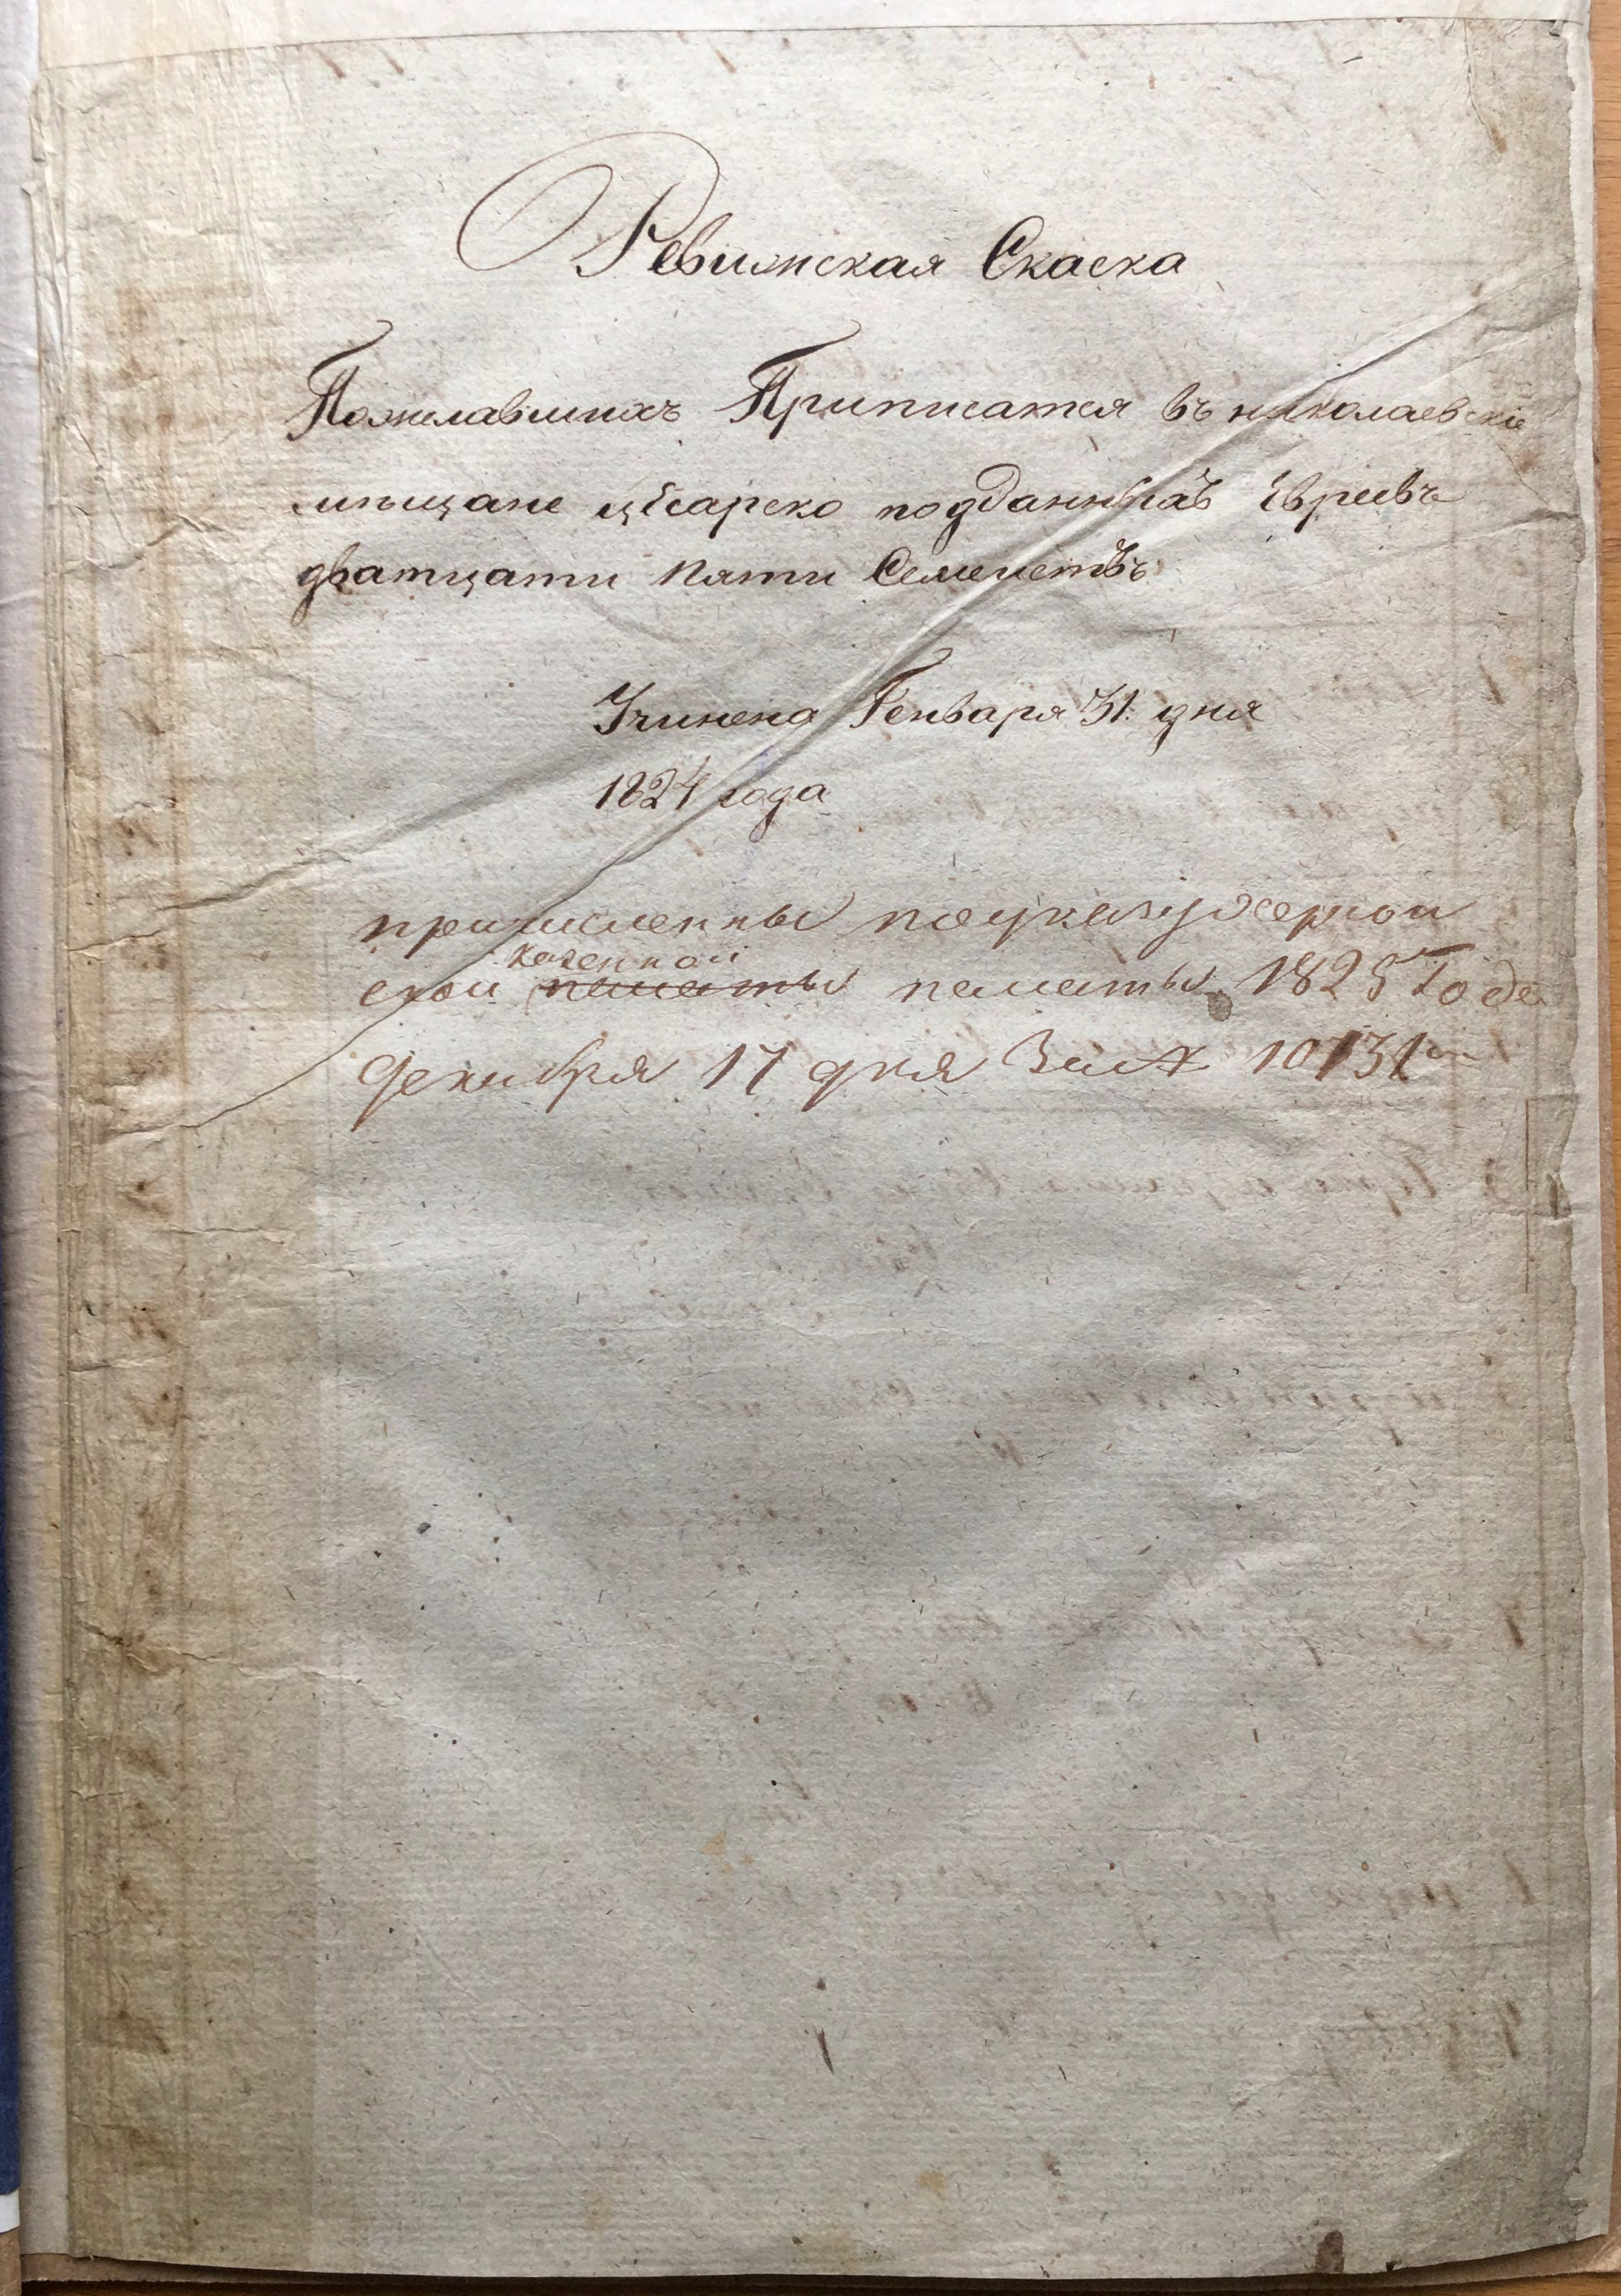 Ревижская Скаска
Пожелавшихъ Приписатся въ николаевские
мѣщане цесарско подданныхъ Евреевъ
дватцати пяти Семействъ
Учинена Генваря 31: дня
1824 года
причисленны поуказу херсон
казенной
ской палаты палаты 1825 Года
декабря 17 дня За № 10131м